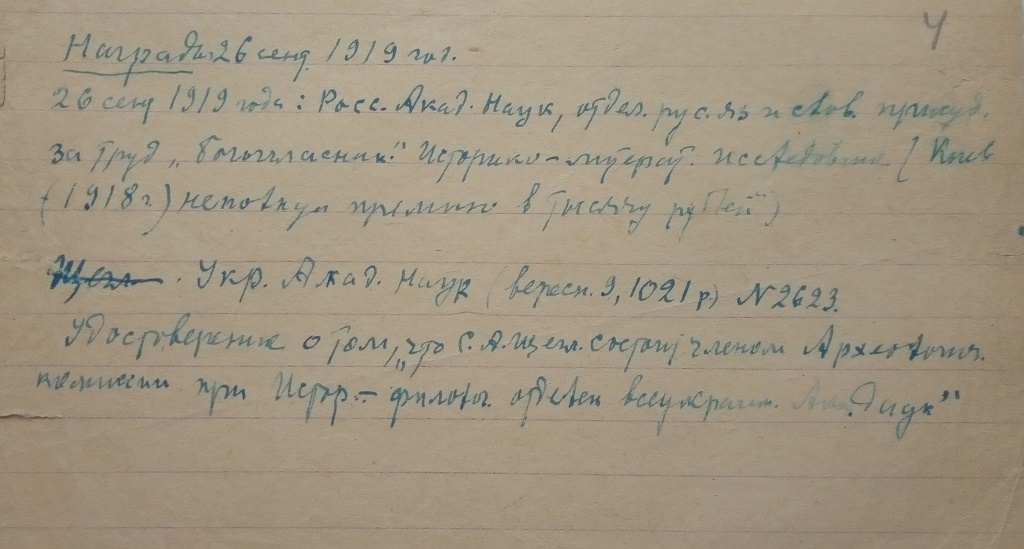 4
Награды 26 сент. 1919 год.
26 сент 1919 года: Росс. Акад. Наук, отдел. рус. яз и слов. присуд.
за труд „Богогласник." Историко-литерат. исследование [Киев
(1918 г.) неполную премию в тысячу рублей")
Щегл . Укр. Акад. Наук (вересн. 9, 1921 р) N 2623.
Удостоверение о том, „что С. А. Щегл. состоит членом Археологич.
комиссии при Истор.- филолог. отделен всеукраин. Акад. наук"